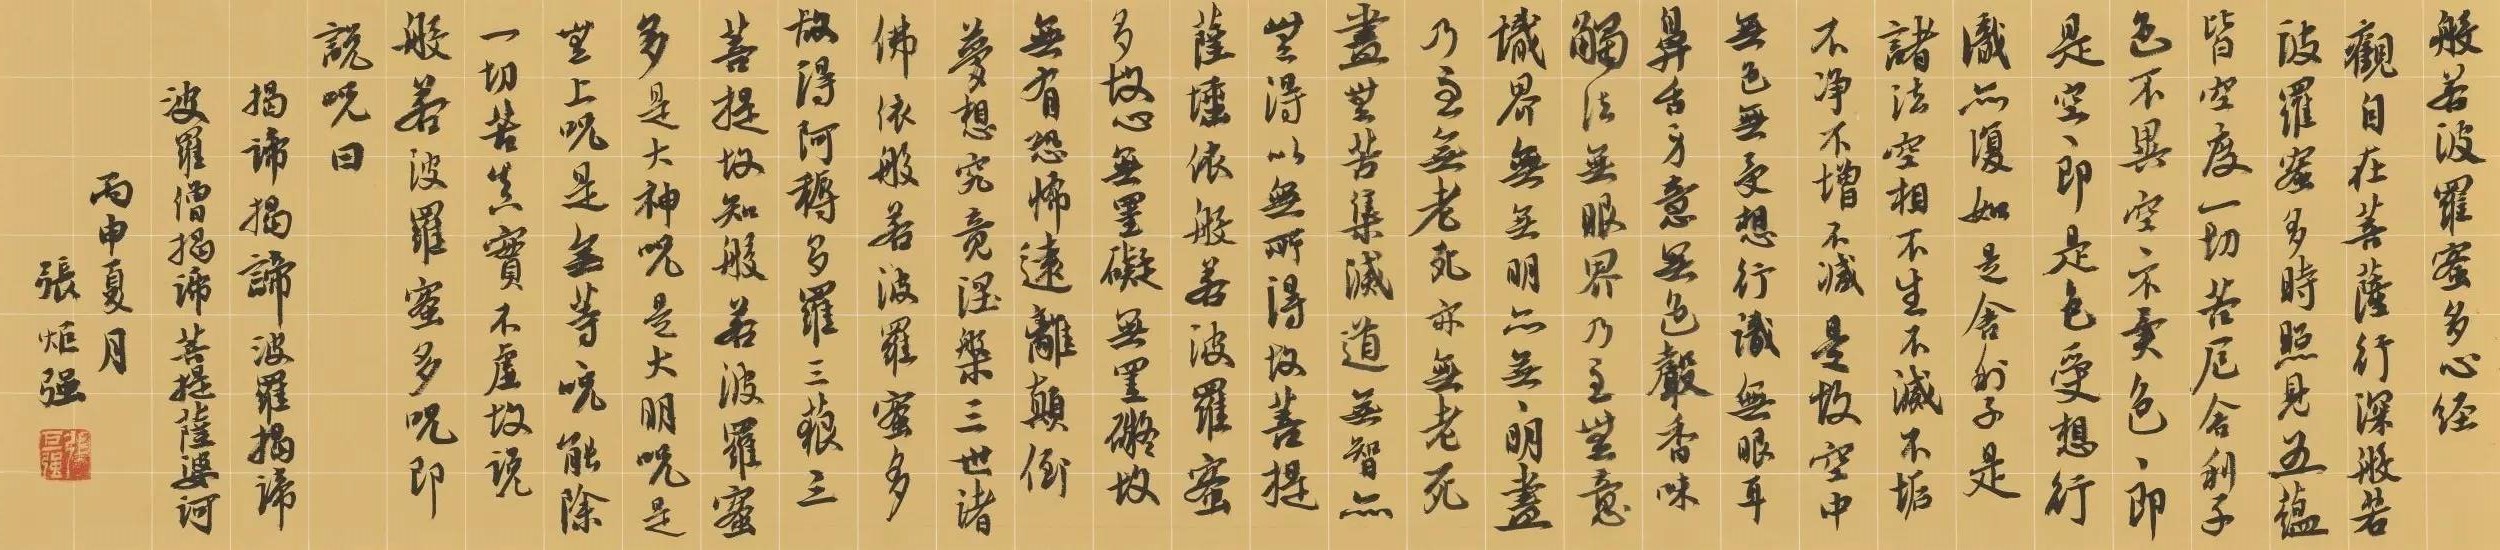 般若波羅蜜多心经
觀自在菩薩行深般若
波羅蜜多時照見五蘊
皆空度一切苦厄舍利子
色不異空、不異色、即
是空、即是色受想行
識亦復如是舍利子是
諸法空相不生不滅不垢
不净不增不減是故空中
無色無受想行識無眼耳
鼻舌身意無色聲香味
觸法無眼界乃至無意
識界無無明亦無、明盡
乃至無老死亦無老死
盡無苦集滅道無智亦
無得以無所得故菩提
薩埵依般若波羅蜜
多故心無罣礙無罣礙故
無有恐怖遠離顛倒
夢想究竟涅槃三世諸
佛依般若波羅蜜多
故得阿耨多羅三藐三
菩提故知般若波羅蜜
多是大神咒是大明咒是
無上咒是無等咒能除
一切苦真實不虛故說
般若波羅蜜多咒即
說咒曰
揭諦揭諦波羅揭諦
波羅僧揭諦菩提薩婆訶
丙申夏月
張炬强